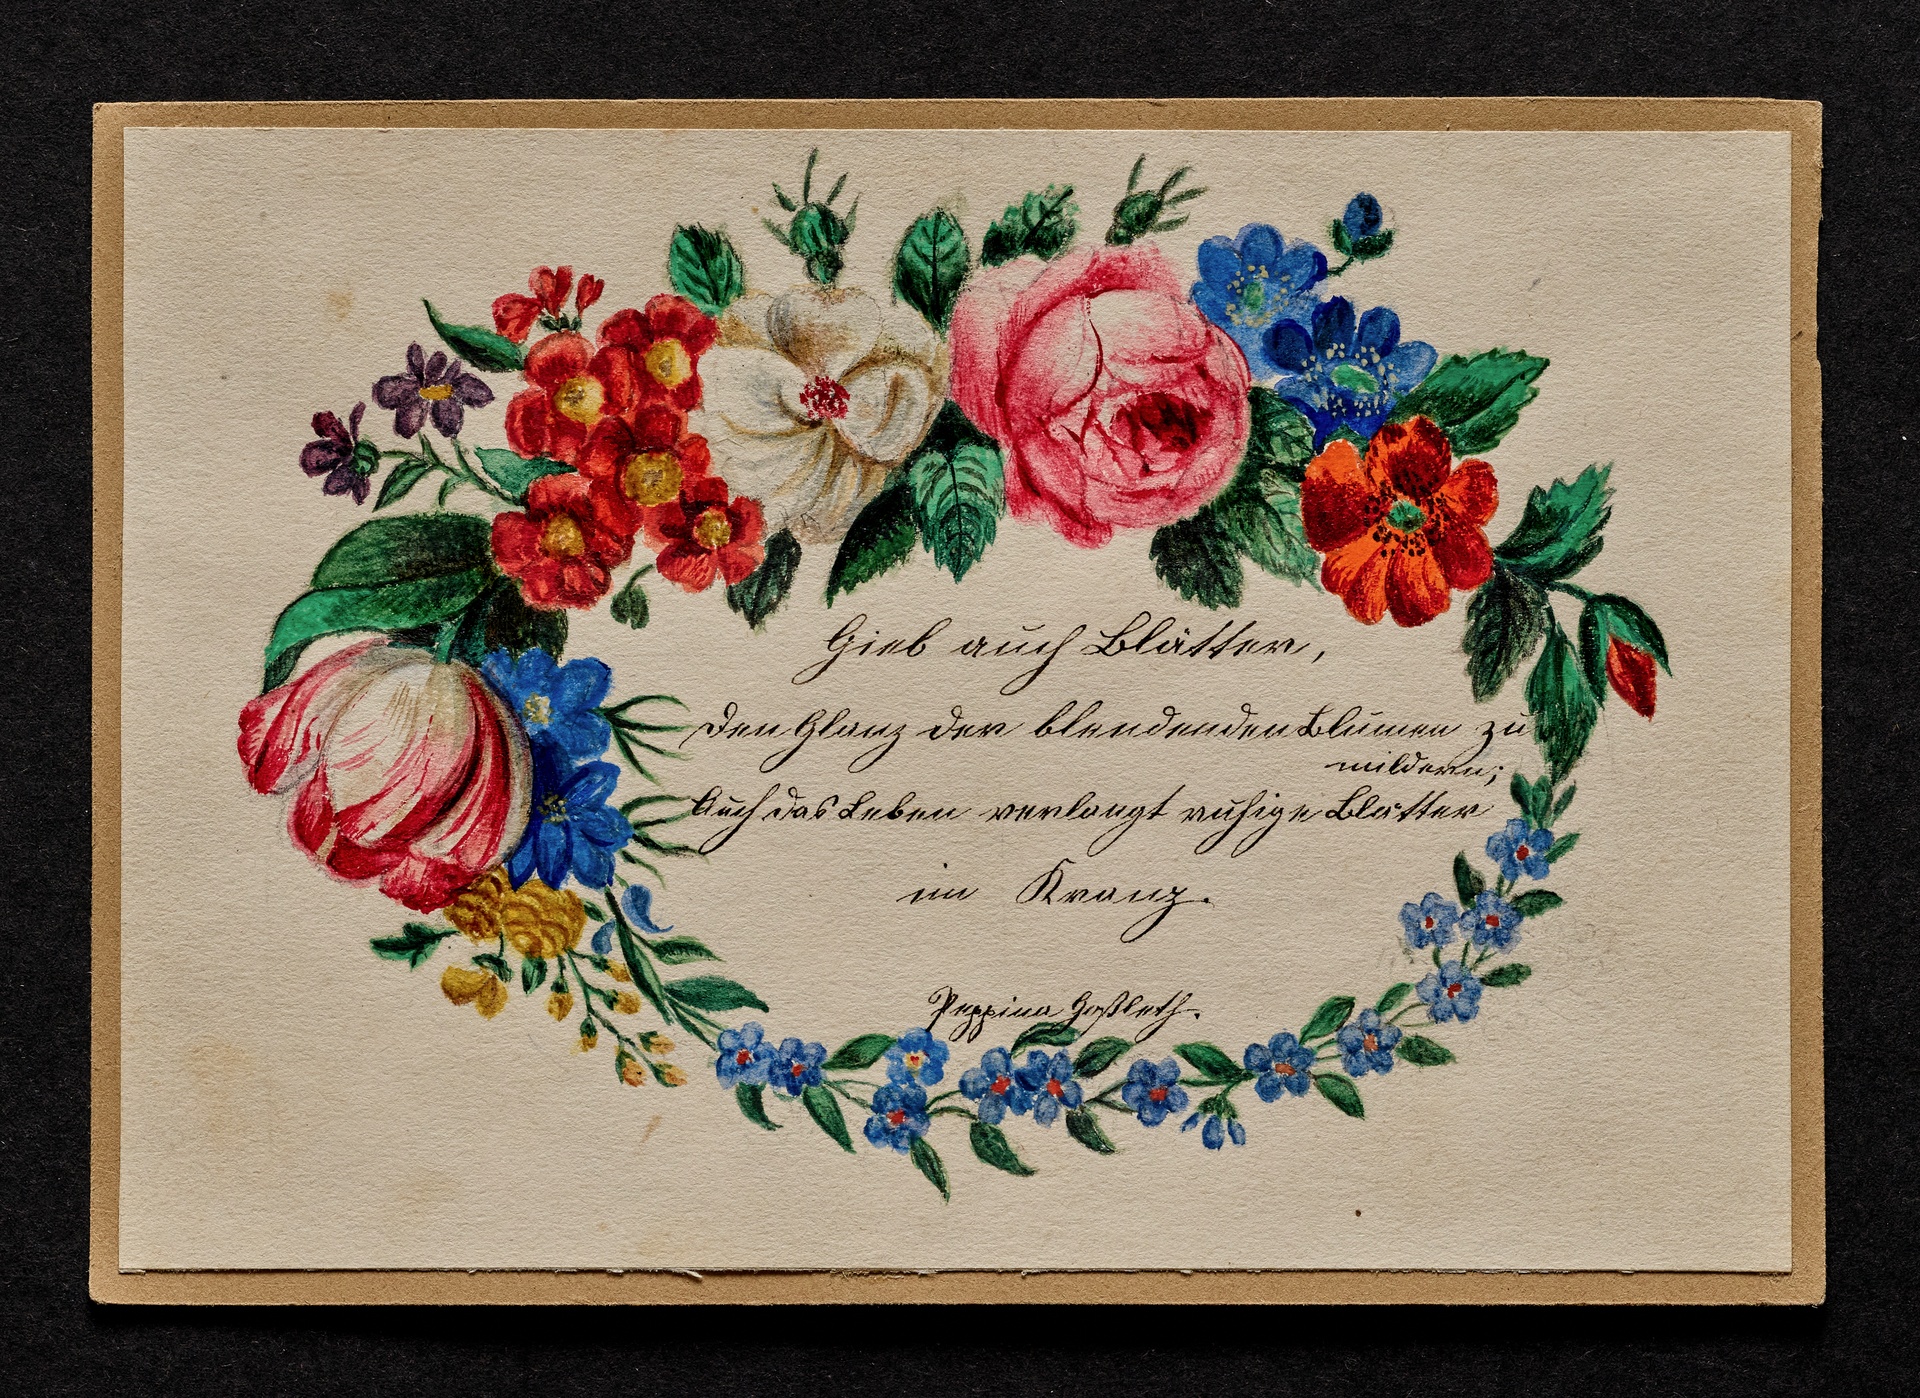 Gieb auch Blätter,
Den Glanz der blendenden Blumen zu
mildern;
Auch das Leben verlangt ruhige Blätter
im Kranz.
Peppina Goßleth.